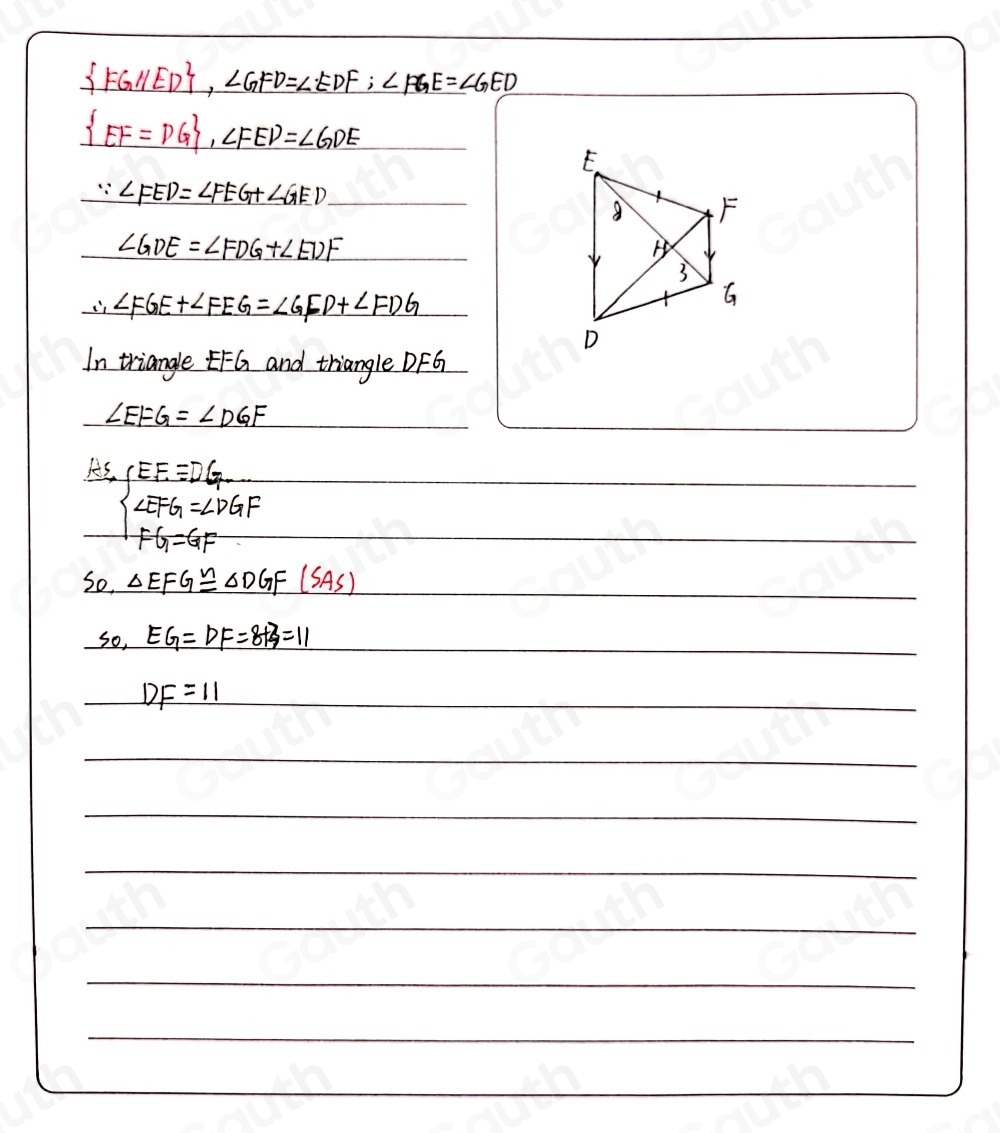 {FG//ED}, ∠GFD=∠EDF; ∠FGE=∠GED
{EF=DG}, ∠FED=∠GDE
∵ ∠FED=∠FEG+∠GED
∠GDE=∠FDG+∠EDF
∴ ∠FGE+∠FEG=∠GED+∠FDG
In triangle EFG and triangle DFG
∠EFG=∠DGF
As {EF=DG
∠EFG=∠DGF
FG=GF
So, △EFG≅△DGF (SAS)
so, EG=DF=8+3=11
DF=11
E
F
8
H
3
G
D
Gauth